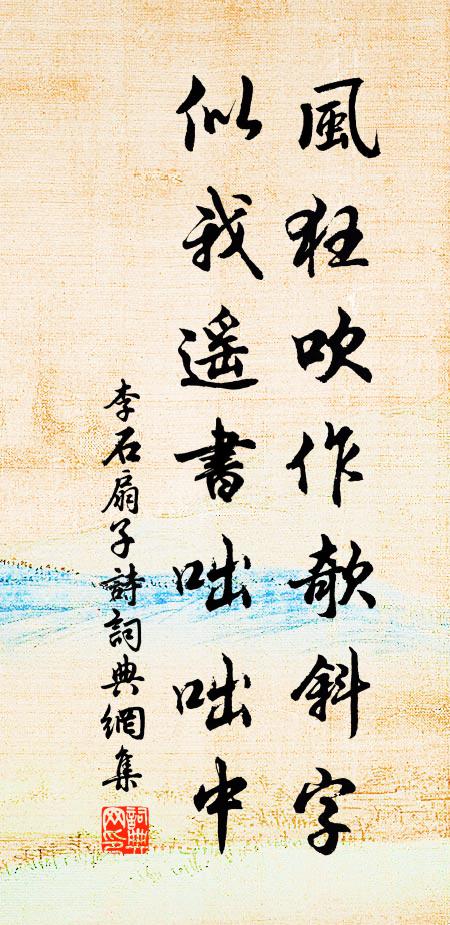 風狂吹作欹斜字
似我遥書咄咄中
李石扇子詩詞典網集
詞典
网印